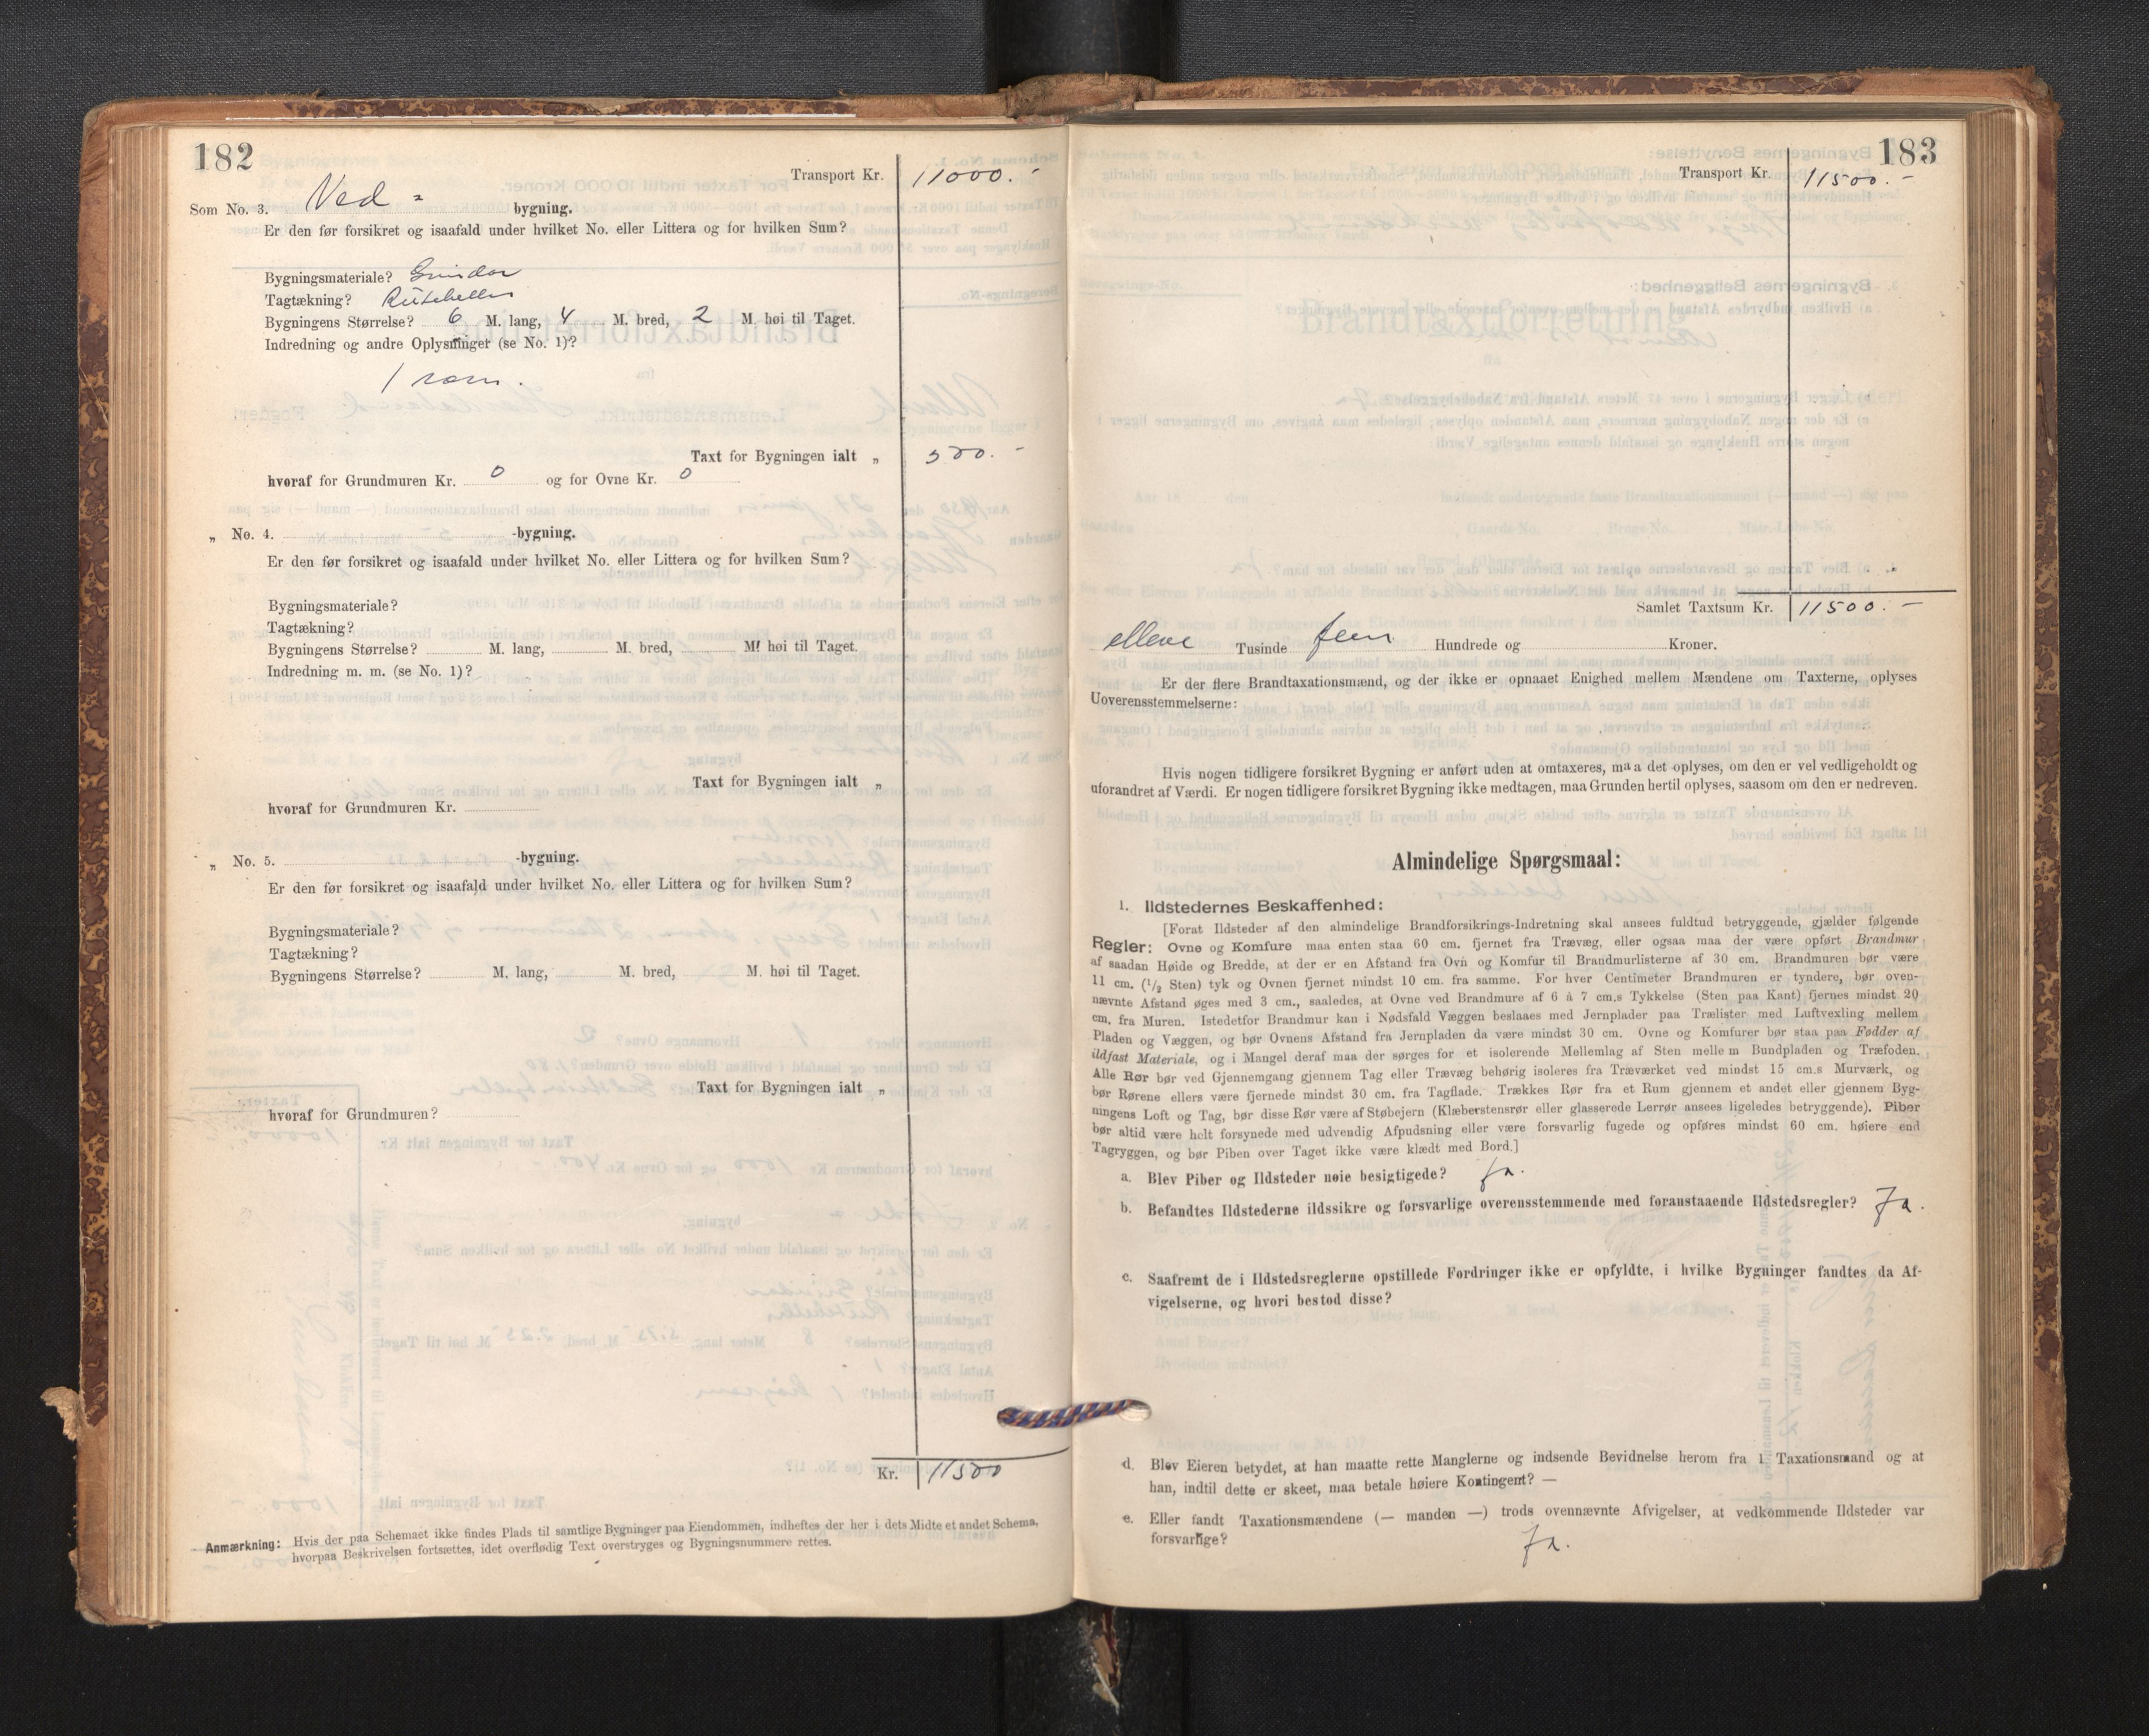 182
Transport Kr. 11000.-
Som No. 3. Ved- bygning.
Er den før forsikret og isaafald under hvilket No. eller Littera og for hvilken Sum?
Bygningsmateriale? Grindar
Tagtækning? Rutehelle
Bygningens Størrelse? 6 M. lang, 4 M. bred, 2 M. høi til Taget.
Indredning og andre Oplysninger (se No. 1)?
1 rom.
Taxt for Bygningen ialt „ 500.-
hvoraf for Grundmuren Kr. 0 og for Ovne Kr. 0
„ No. 4. -bygning.
Er den før forsikret og isaafald under hvilket No. eller Littera og for hvilken Sum?
Bygningsmateriale?
Tagtækning?
Bygningens Størrelse? M. lang, M. bred, M. høi til Taget.
Indredning m. m. (se No. 1)?
Taxt for Bygningen ialt „
hvoraf for Grundmuren Kr.
„ No. 5. -bygning.
Er den før forsikret og isaafald under hvilket No. eller Littera og for hvilken Sum?
Bygningsmateriale?
Tagtækning?
Bygningens Størrelse? M. lang, M. bred, M. høi til Taget.
Taxt for Bygningen ialt „
hvoraf for Grundmuren?
Kr. 11500
Anmærkning: Hvis der paa Schemaet ikke findes Plads til samtlige Bygninger paa Eiendommen, indheftes der her i dets Midte et andet Schema,
hvorpaa Beskrivelsen fortsættes, idet overflødig Text overstryges og Bygningsnummere rettes.
183
Transport Kr. 11500.-
Samlet Taxtsum Kr. 11500.-
elleve Tusinde fem Hundrede og Kroner.
Er der flere Brandtaxationsmænd, og der ikke er opnaaet Enighed mellem Mændene om Taxterne, oplyses
Uoverensstemmelserne:
Hvis nogen tidligere forsikret Bygning er anført uden at omtaxeres, maa det oplyses, om den er vel vedligeholdt og
uforandret af Værdi. Er nogen tidligere forsikret Bygning ikke medtagen, maa Grunden hertil oplyses, saasom om den er nedreven.
Almindelige Spørgsmaal:
1. Ildstedernes Beskaffenhed:
[Forat Ildsteder af den almindelige Brandforsikrings-Indretning skal ansees fuldtud betryggende, gjælder følgende
Regler: Ovne og Komfure maa enten staa 60 cm. fjernet fra Trævæg, eller ogsaa maa der være opført Brandmur
af saadan Høide og Bredde, at der er en Afstand fra Ovn og Komfur til Brandmurlisterne af 30 cm. Brandmuren bør være
11 cm. (1/2 Sten) tyk og Ovnen fjernet mindst 10 cm. fra samme. For hver Centimeter Brandmuren er tyndere, bør oven-
nævnte Afstand øges med 3 cm., saaledes, at Ovne ved Brandmure af 6 à 7 cm.s Tykkelse (Sten paa Kant) fjernes mindst 20
cm. fra Muren. Istedetfor Brandmur kan i Nødsfald Væggen beslaaes med Jernplader paa Trælister med Luftvexling mellem
Pladen og Væggen, og bør Ovnens Afstand fra Jernpladen da være mindst 30 cm. Ovne og Komfurer bør staa paa Fødder af
ildfast Materiale, og i Mangel deraf maa der sørges for et isolerende Mellemlag af Sten mellem Bundpladen og Træfoden.
Alle Rør bør ved Gjennemgang gjennem Tag eller Trævæg behørig isoleres fra Træværket ved mindst 15 cm.s Murværk, og
bør Rørene ellers være fjernede mindst 30 cm. fra Tagflade. Trækkes Rør fra et Rum gjennem et andet eller gjennem Byg-
ningens Loft og Tag, bør disse Rør være af Støbejern (Klæberstensrør eller glasserede Lerrør ansees ligeledes betryggende). Piber
bør altid være helt forsynede med udvendig Afpudsning eller være forsvarlig fugede og opføres mindst 60 cm. høiere end
Tagryggen, og bør Piben over Taget ikke være klædt med Bord.]
a. Blev Piber og Ildsteder nøie besigtigede? Ja.
b. Befandtes Ildstederne ildssikre og forsvarlige overensstemmende med foranstaaende Ildstedsregler? Ja.
c. Saafremt de i Ildstedsreglerne opstillede Fordringer ikke er opfyldte, i hvilke Bygninger fandtes da Af-
vigelserne, og hvori bestod disse?
d. Blev Eieren betydet, at han maatte rette Manglerne og indsende Bevidnelse herom fra 1 Taxationsmand og at
han, indtil dette er skeet, maa betale høiere Kontingent? —
e. Eller fandt Taxationsmændene (— manden —) trods ovennævnte Afvigelser, at vedkommende Ildsteder var
forsvarlige? Ja.